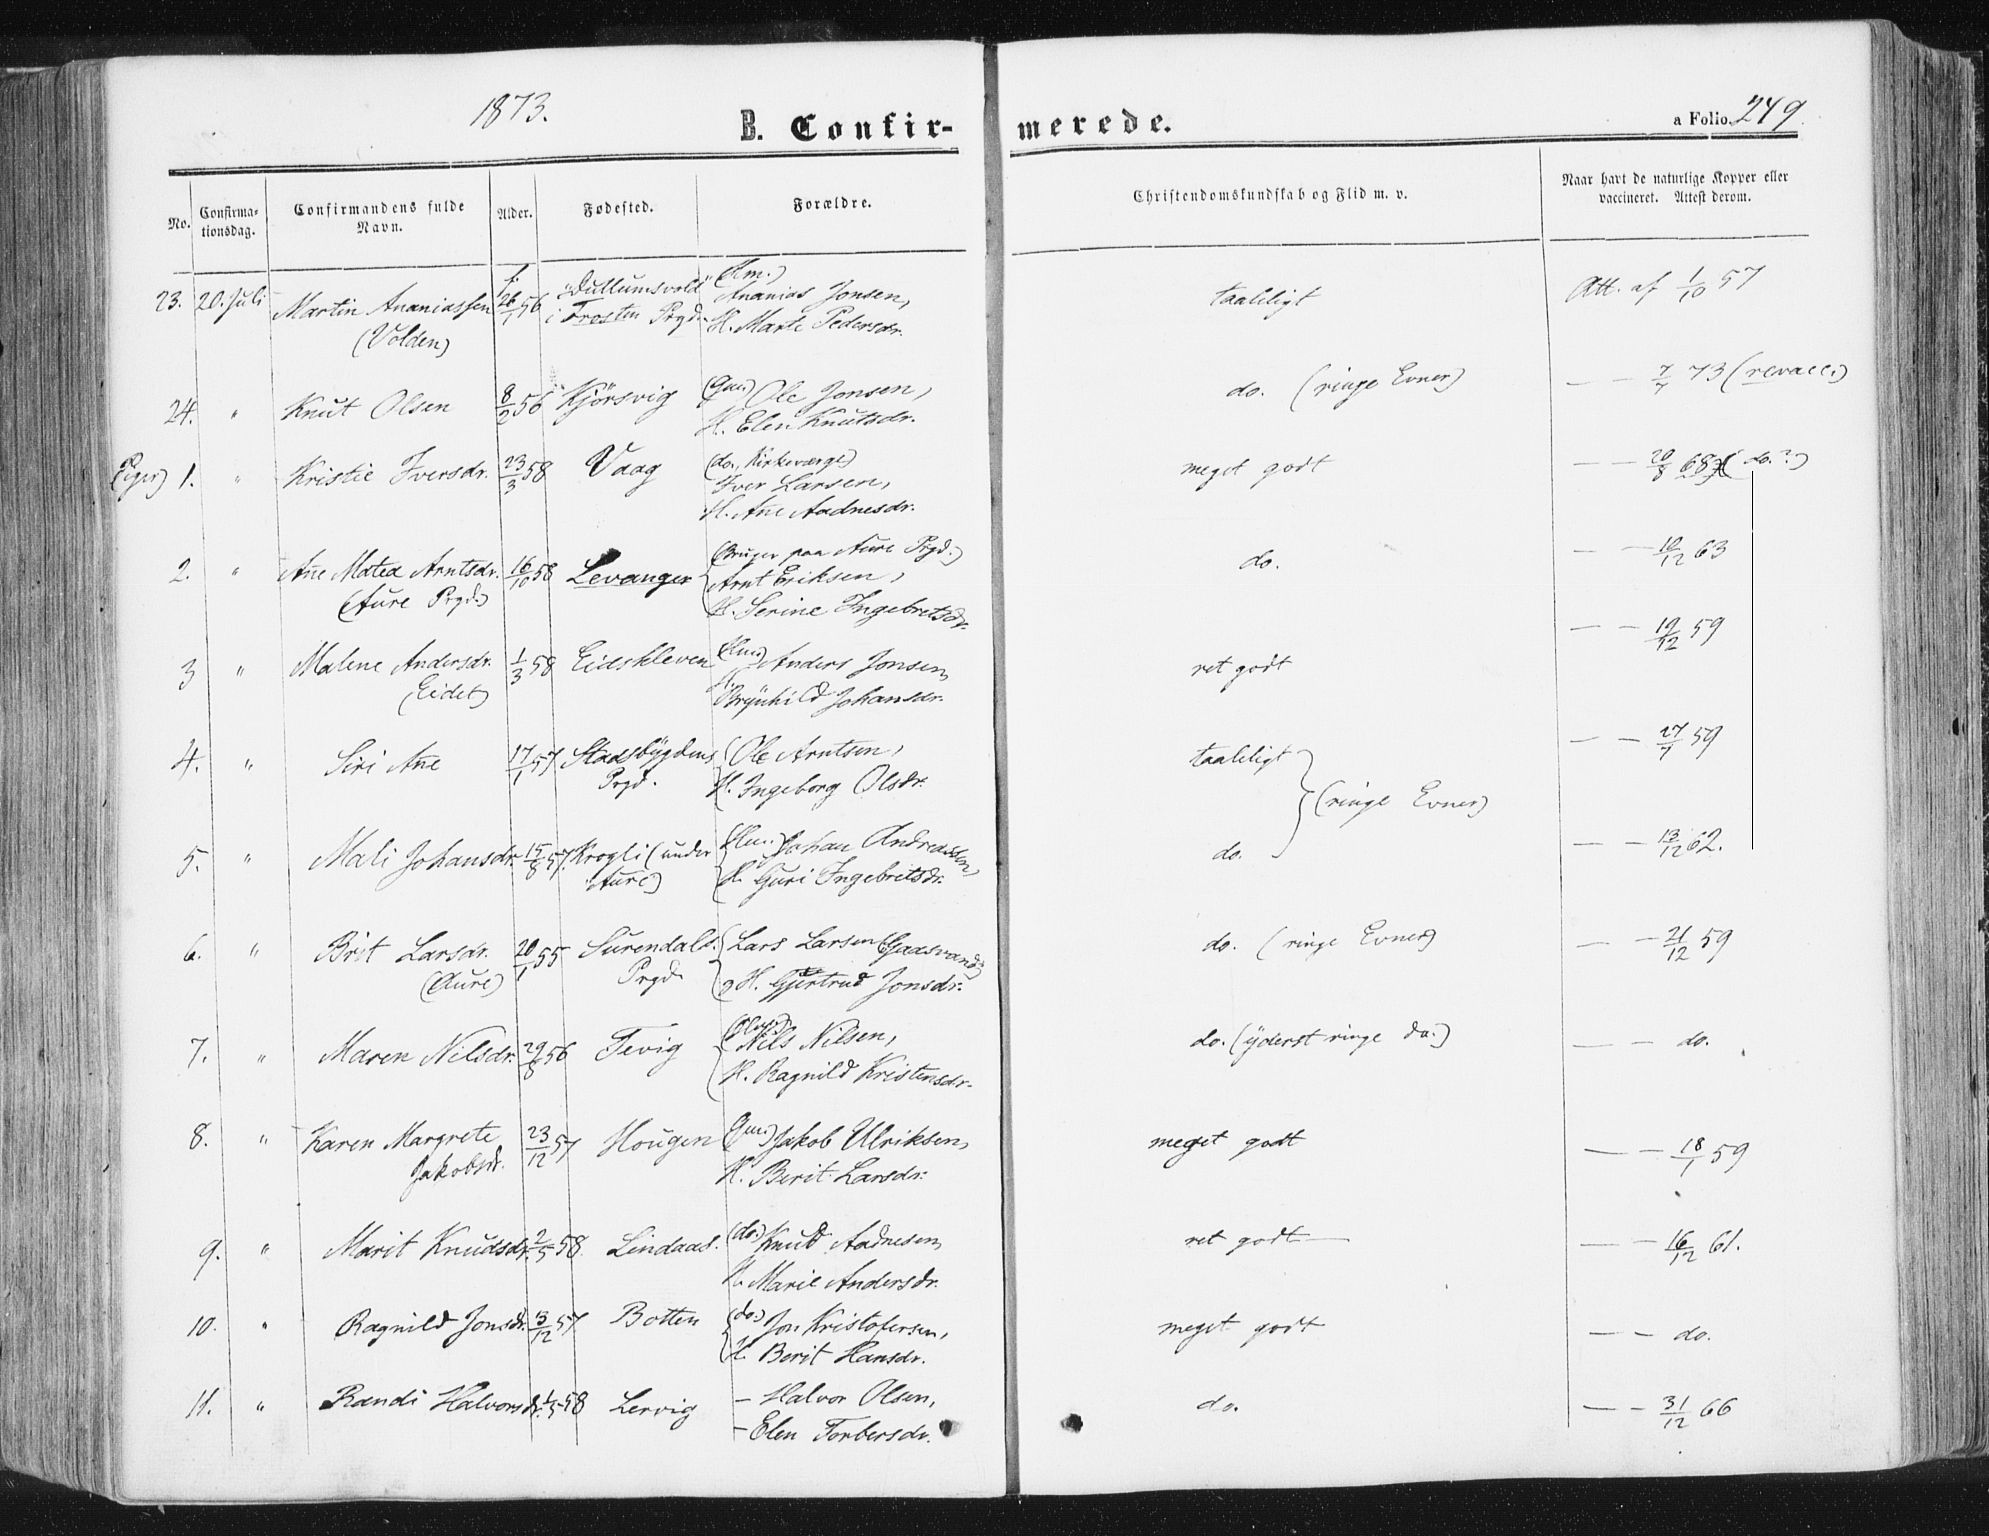 1873.
B. Confir-
merede.
a Folio. 249
No.
Confirma-
tionsdag.
Confirmandens fulde
Navn.
Alder.
Fødested.
Forældre.
Christendomskundskab og Flid m. v.
Naar havt de naturlige Kopper eller
vaccineret. Attest derom.
23. 20. Juli Martin Ananiassen 26/1 56 "Dullumsvold" (Hm.) Ananias Jonsen, taaleligt Att. af 1/10 57
(Volden) i Frosten Prgd. H. Marte Pedersdr.
24. " Knut Olsen 8/2 56 Kjörsvig (Gm.) Ole Jonsen, do. (ringe Evner) — — 7/7 73 (revacc.)
H. Elen Knutsdr.
Piger) 1. " Kristie Iversdr. 23/3 58 Vaag (do., Kirkeværge) meget godt — — 20/8 68 (do.?)
Iver Larsen,
H. Ane Aadnesdr.
2. " Ane Matea Arntsdr. 16/10 58 Levanger (Bruger paa Aure Prgd.) do. — — 10/12 63
(Aure Prgd.) Arnt Eriksen,
H. Serine Ingebretsdr.
3 " Malene Andersdr. 1/3 58 Eidskleven (Hm.) Anders Jonsen, ret godt — — 19/12 59
(Eidet) H. Brynhild Johansdr.
4. " Siri Ane 17/1 57 Stadsbygdens Ole Arntsen, taaleligt — — 27/7 59
Prgd. H. Ingeborg Olsdr.
(ringe Evner)
5. " Mali Johansdr. 15/8 57. Krogli (under (Hm.) Johan Andreassen, do. — — 13/12 62.
Aure) H. Guri Ingebretsdr.
6. " Brit Larsdr. 20/1 55 Surendals Lars Larsen (Gaasvand) do. (ringe Evner) — — 21/12 59
(Aure) Prgd. H. Gjertrud Jonsdr.
7. " Maren Nilsdr. 29/8 56 Tevig (Hm.) Nils Nilsen, do. (yderst ringe do.) — — do.
H. Ragnild Kristensdr.
8. " Karen Margrete 23/12 57 Hougen (Gm.) Jakob Ulriksen, meget godt — — 18/1 59
Jakobsdr. H. Berit Larsdr.
9. " Marit Knudsdr. 2/5 58. Lindaas. (do.) Knud Aadnesen, ret godt — — 16/12 61.
H. Marie Andersdr.
10. " Ragnild Jonsdr. 3/12 57 Botten (do.) Jon Kristofersen, meget godt — — do.
H. Berit Hansdr.
11. " Randi Halvorsdr. 1/5 58 Lervig — Halvor Olsen, do. — — 31/12 66
— Elen Torbersdr.